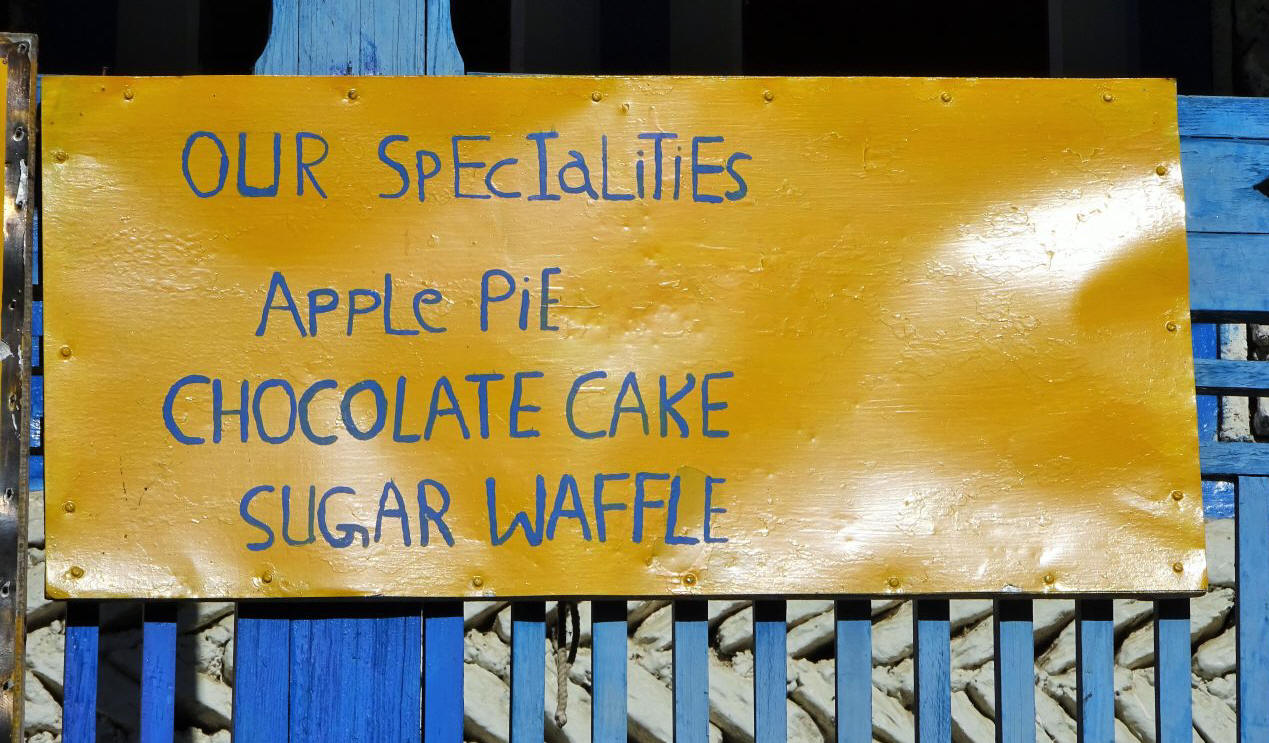 OUR SPECIaLiTiES
APPLe PiE
CHOCOLATE CAKE
SUGAR WAFFLE